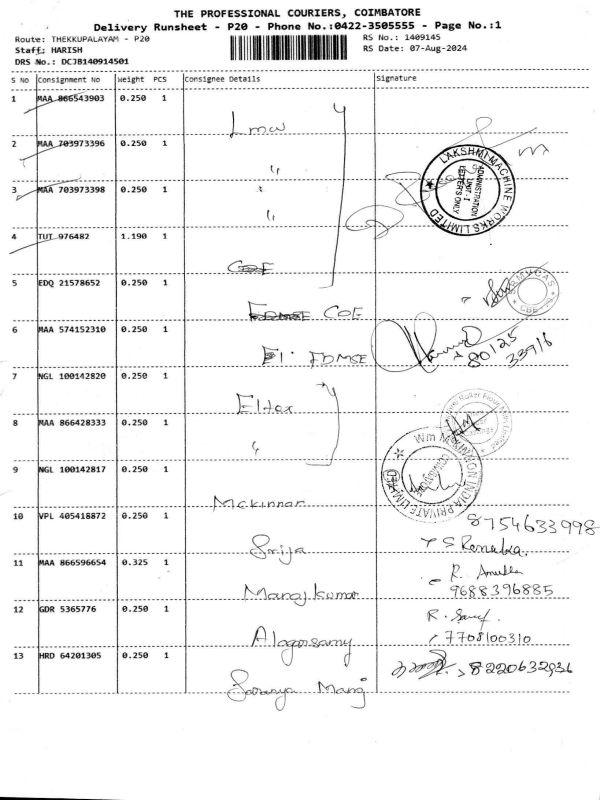 THE PROFESSIONAL COURIERS, COIMBATORE
Delivery Runsheet - P20 - Phone No.:0422-3505555 - Page No.:1
Route: THEKKUPALAYAM - P20 RS No.: 1409145
Staff: HARISH RS Date: 07-Aug-2024
DRS No.: DCJB140914501
S No Consignment No Weight PCS Consignee Details Signature
1 MAA 866543903 0.250 1
Lmw
2 MAA 703973396 0.250 1
"
3 MAA 703973398 0.250 1
"
LAKSHMI MACHINE WORKS LIMITED
ADMINISTRATION
UNIT - I
LETTERS ONLY
4 TUT 976482 1.190 1
COE
5 EDQ 21578652 0.250 1
COE
CBE
6 MAA 574152310 0.250 1
El. FDMSE
80125
33916
7 NGL 100142820 0.250 1
Eltex
8 MAA 866428333 0.250 1
"
Wm McKINNON INDIA PRIVATE LIMITED
9 NGL 100142817 0.250 1
Mckinnar
10 VPL 405418872 0.250 1 8754633998
Srija S Renuka.
11 MAA 866596654 0.325 1 R.
Manoj kumar 9688396885
12 GDR 5365776 0.250 1 R.
Alagarsamy 7708100310
13 HRD 64201305 0.250 1 8220632936
Saranya Manoj